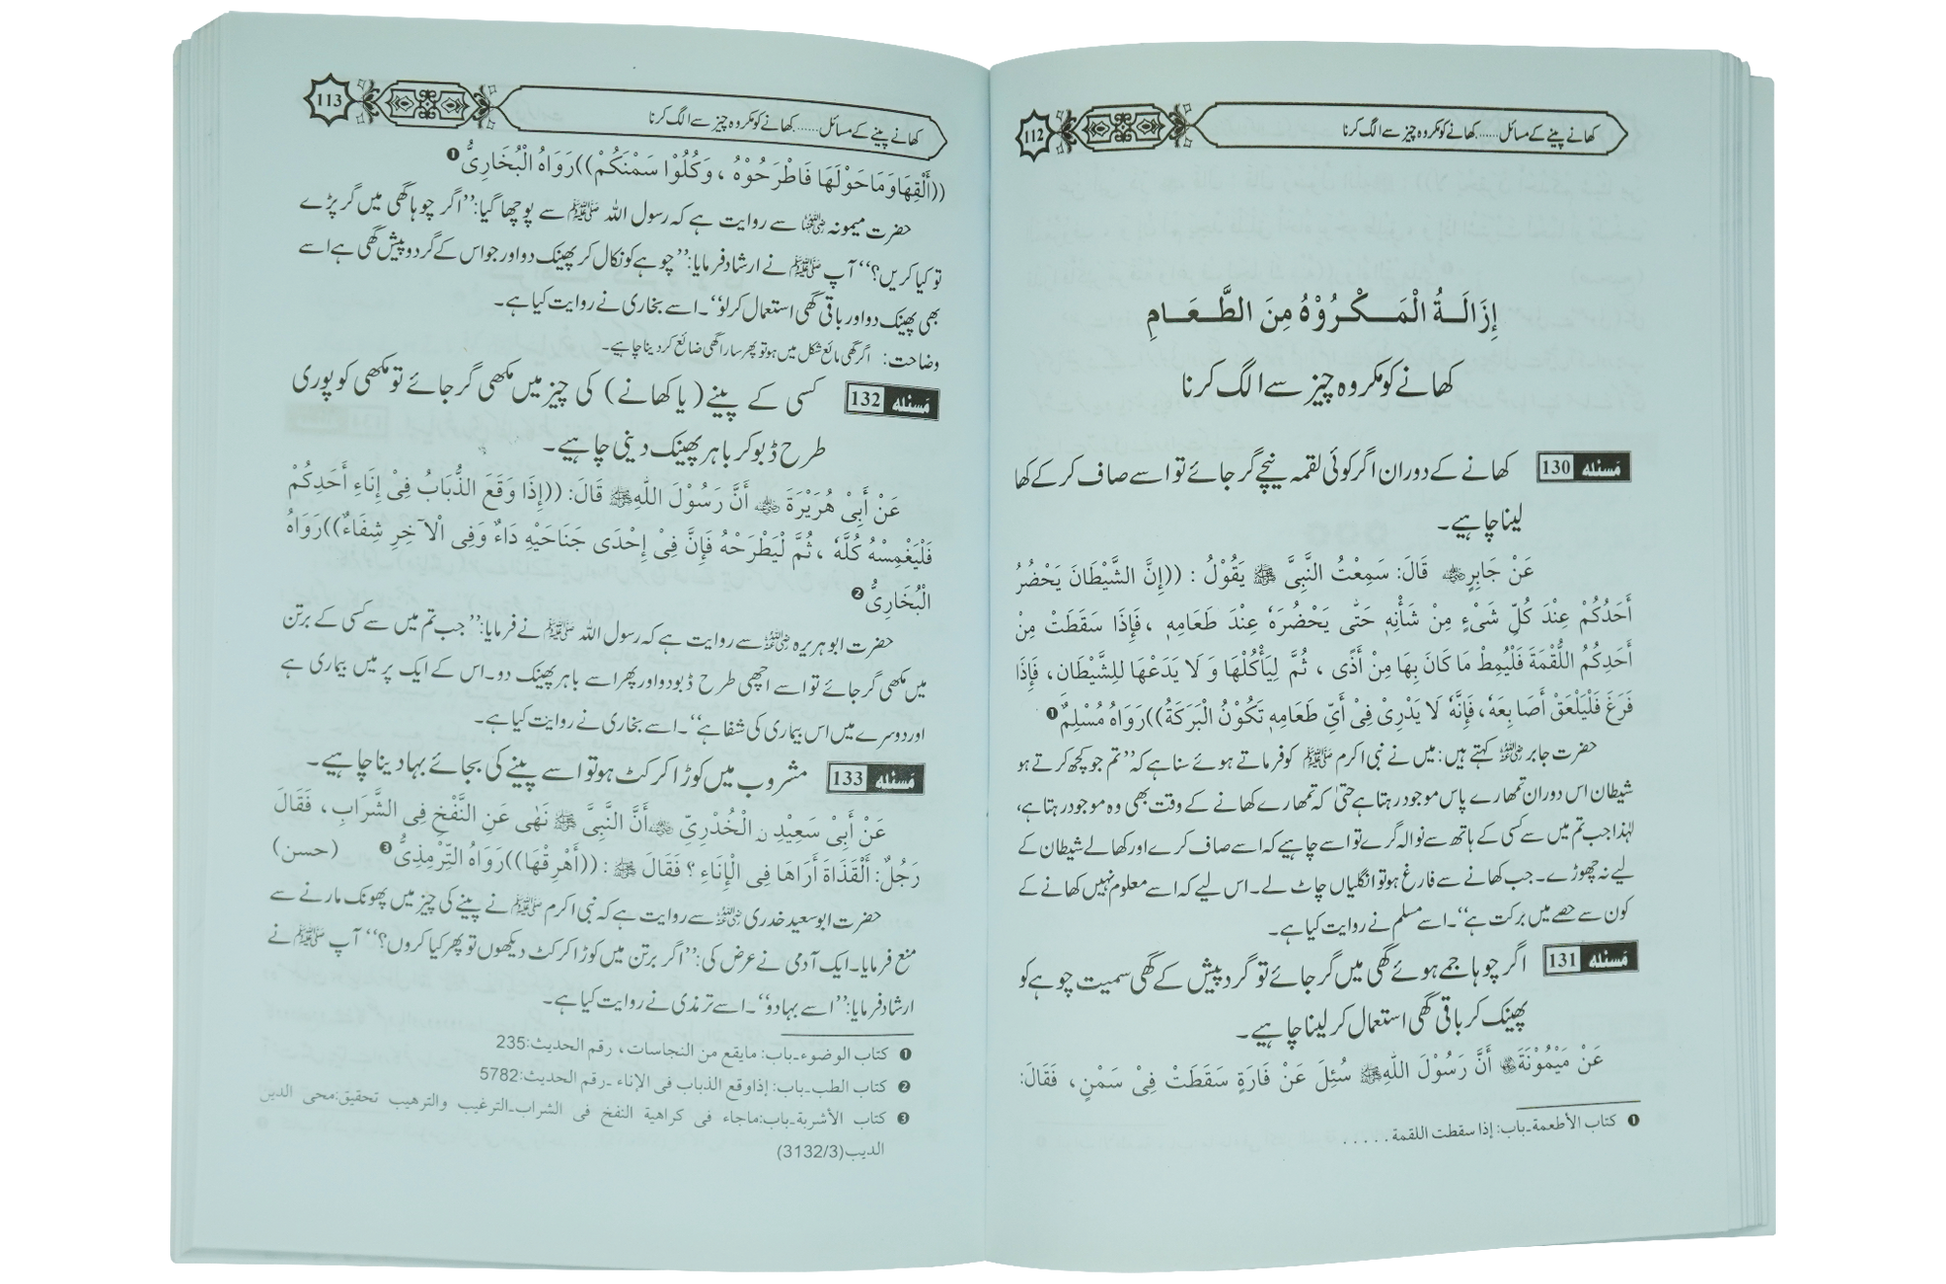 112
کھانے پینے کے مسائل ...... کھانے کو مکروہ چیز سے الگ کرنا
إِزَالَةُ الْمَكْرُوْهُ مِنَ الطَّعَامِ
کھانے کو مکروہ چیز سے الگ کرنا
مَسئله 130 کھانے کے دوران اگر کوئی لقمہ نیچے گر جائے تو اسے صاف کر کے کھا
لینا چاہیے۔
عَنْ جَابِرٍ ؓ قَالَ: سَمِعْتُ النَّبِىَّ ﷺ يَقُوْلُ : ((إِنَّ الشَّيْطَانَ يَحْضُرُ
أَحَدَكُمْ عِنْدَ كُلِّ شَىْءٍ مِنْ شَأْنِهٖ حَتّٰى يَحْضُرَهٗ عِنْدَ طَعَامِهٖ ، فَإِذَا سَقَطَتْ مِنْ
أَحَدِكُمُ اللُّقْمَةَ فَلْيُمِطْ مَا كَانَ بِهَا مِنْ أَذًى ، ثُمَّ لِيَأْكُلْهَا وَ لَا يَدَعْهَا لِلشَّيْطَانِ، فَإِذَا
فَرَغَ فَلْيَلْعَقْ أَصَابِعَهٗ، فَإِنَّهٗ لَا يَدْرِىْ فِىْ أَىِّ طَعَامِهٖ تَكُوْنُ الْبَرَكَةُ)) رَوَاهُ مُسْلِمٌ ❶
حضرت جابر ؓ کہتے ہیں: میں نے نبی اکرم ﷺ کو فرماتے ہوئے سنا ہے کہ ’’تم جو کچھ کرتے ہو
شیطان اس دوران تمھارے پاس موجود رہتا ہے حتیٰ کہ تمھارے کھانے کے وقت بھی وہ موجود رہتا ہے،
لہٰذا جب تم میں سے کسی کے ہاتھ سے نوالہ گرے تو اسے چاہیے کہ اسے صاف کرے اور کھا لے شیطان کے
لیے نہ چھوڑے۔ جب کھانے سے فارغ ہو تو انگلیاں چاٹ لے۔ اس لیے کہ اسے معلوم نہیں کھانے کے
کون سے حصے میں برکت ہے‘‘۔ اسے مسلم نے روایت کیا ہے۔
مَسئله 131 اگر چوہا جمے ہوئے گھی میں گر جائے تو گرد و پیش کے گھی سمیت چوہے کو
پھینک کر باقی گھی استعمال کر لینا چاہیے۔
عَنْ مَيْمُوْنَةَ ؓ أَنَّ رَسُوْلَ اللّٰهِ ﷺ سُئِلَ عَنْ فَارَةٍ سَقَطَتْ فِىْ سَمْنٍ، فَقَالَ:
❶ كتاب الأطعمة۔باب: إذا سقطت اللقمة . . . . .
113
کھانے پینے کے مسائل ...... کھانے کو مکروہ چیز سے الگ کرنا
((أَلْقِهَا وَمَا حَوْلَهَا فَاطْرَحُوْهُ ، وَكُلُوْا سَمْنَكُمْ)) رَوَاهُ الْبُخَارِىُّ ❶
حضرت میمونہ ؓ سے روایت ہے کہ رسول اللہ ﷺ سے پوچھا گیا: ’’اگر چوہا گھی میں گر پڑے
تو کیا کریں؟‘‘ آپ ﷺ نے ارشاد فرمایا: ’’چوہے کو نکال کر پھینک دو اور جو اس کے گرد و پیش گھی ہے اسے
بھی پھینک دو اور باقی گھی استعمال کر لو‘‘۔ اسے بخاری نے روایت کیا ہے۔
وضاحت: اگر گھی مائع شکل میں ہو تو پھر سارا گھی ضائع کر دینا چاہیے۔
مَسئله 132 کسی کے پینے (یا کھانے) کی چیز میں مکھی گر جائے تو مکھی کو پوری
طرح ڈبو کر باہر پھینک دینی چاہیے۔
عَنْ أَبِىْ هُرَيْرَةَ ؓ أَنَّ رَسُوْلَ اللّٰهِ ﷺ قَالَ: ((إِذَا وَقَعَ الذُّبَابُ فِىْ إِنَاءِ أَحَدِكُمْ
فَلْيَغْمِسْهُ كُلَّهٗ ، ثُمَّ لْيَطْرَحْهُ فَإِنَّ فِىْ إِحْدَى جَنَاحَيْهِ دَاءٌ وَفِى الْآخِرِ شِفَاءٌ)) رَوَاهُ
الْبُخَارِىُّ ❷
حضرت ابوہریرہ ؓ سے روایت ہے کہ رسول اللہ ﷺ نے فرمایا: ’’جب تم میں سے کسی کے برتن
میں مکھی گر جائے تو اسے اچھی طرح ڈبو دو اور پھر اسے باہر پھینک دو۔ اس کے ایک پر میں بیماری ہے
اور دوسرے میں اس بیماری کی شفا ہے‘‘۔ اسے بخاری نے روایت کیا ہے۔
مَسئله 133 مشروب میں کوڑا کرکٹ ہو تو اسے پینے کی بجائے بہا دینا چاہیے۔
عَنْ أَبِىْ سَعِيْدِ نِ الْخُدْرِىِّ ؓ أَنَّ النَّبِىَّ ﷺ نَهٰى عَنِ النَّفْخِ فِى الشَّرَابِ، فَقَالَ
رَجُلٌ: اَلْقَذَاةَ أَرَاهَا فِى الْإِنَاءِ ؟ فَقَالَ ﷺ : ((أَهْرِقْهَا)) رَوَاهُ التِّرْمِذِىُّ ❸ (حسن)
حضرت ابوسعید خدری ؓ سے روایت ہے کہ نبی اکرم ﷺ نے پینے کی چیز میں پھونک مارنے سے
منع فرمایا۔ ایک آدمی نے عرض کی: ’’اگر برتن میں کوڑا کرکٹ دیکھوں تو پھر کیا کروں؟‘‘ آپ ﷺ نے
ارشاد فرمایا: ’’اسے بہا دو‘‘۔ اسے ترمذی نے روایت کیا ہے۔
❶ كتاب الوضوء۔باب: مايقع من النجاسات، رقم الحديث:235
❷ كتاب الطب۔باب: إذاوقع الذباب فى الإناء ۔رقم الحديث:5782
❸ كتاب الأشربة۔باب:ماجاء فى كراهية النفخ فى الشراب۔الترغيب والترهيب تحقيق:محى الدين
الديب(3132/3)